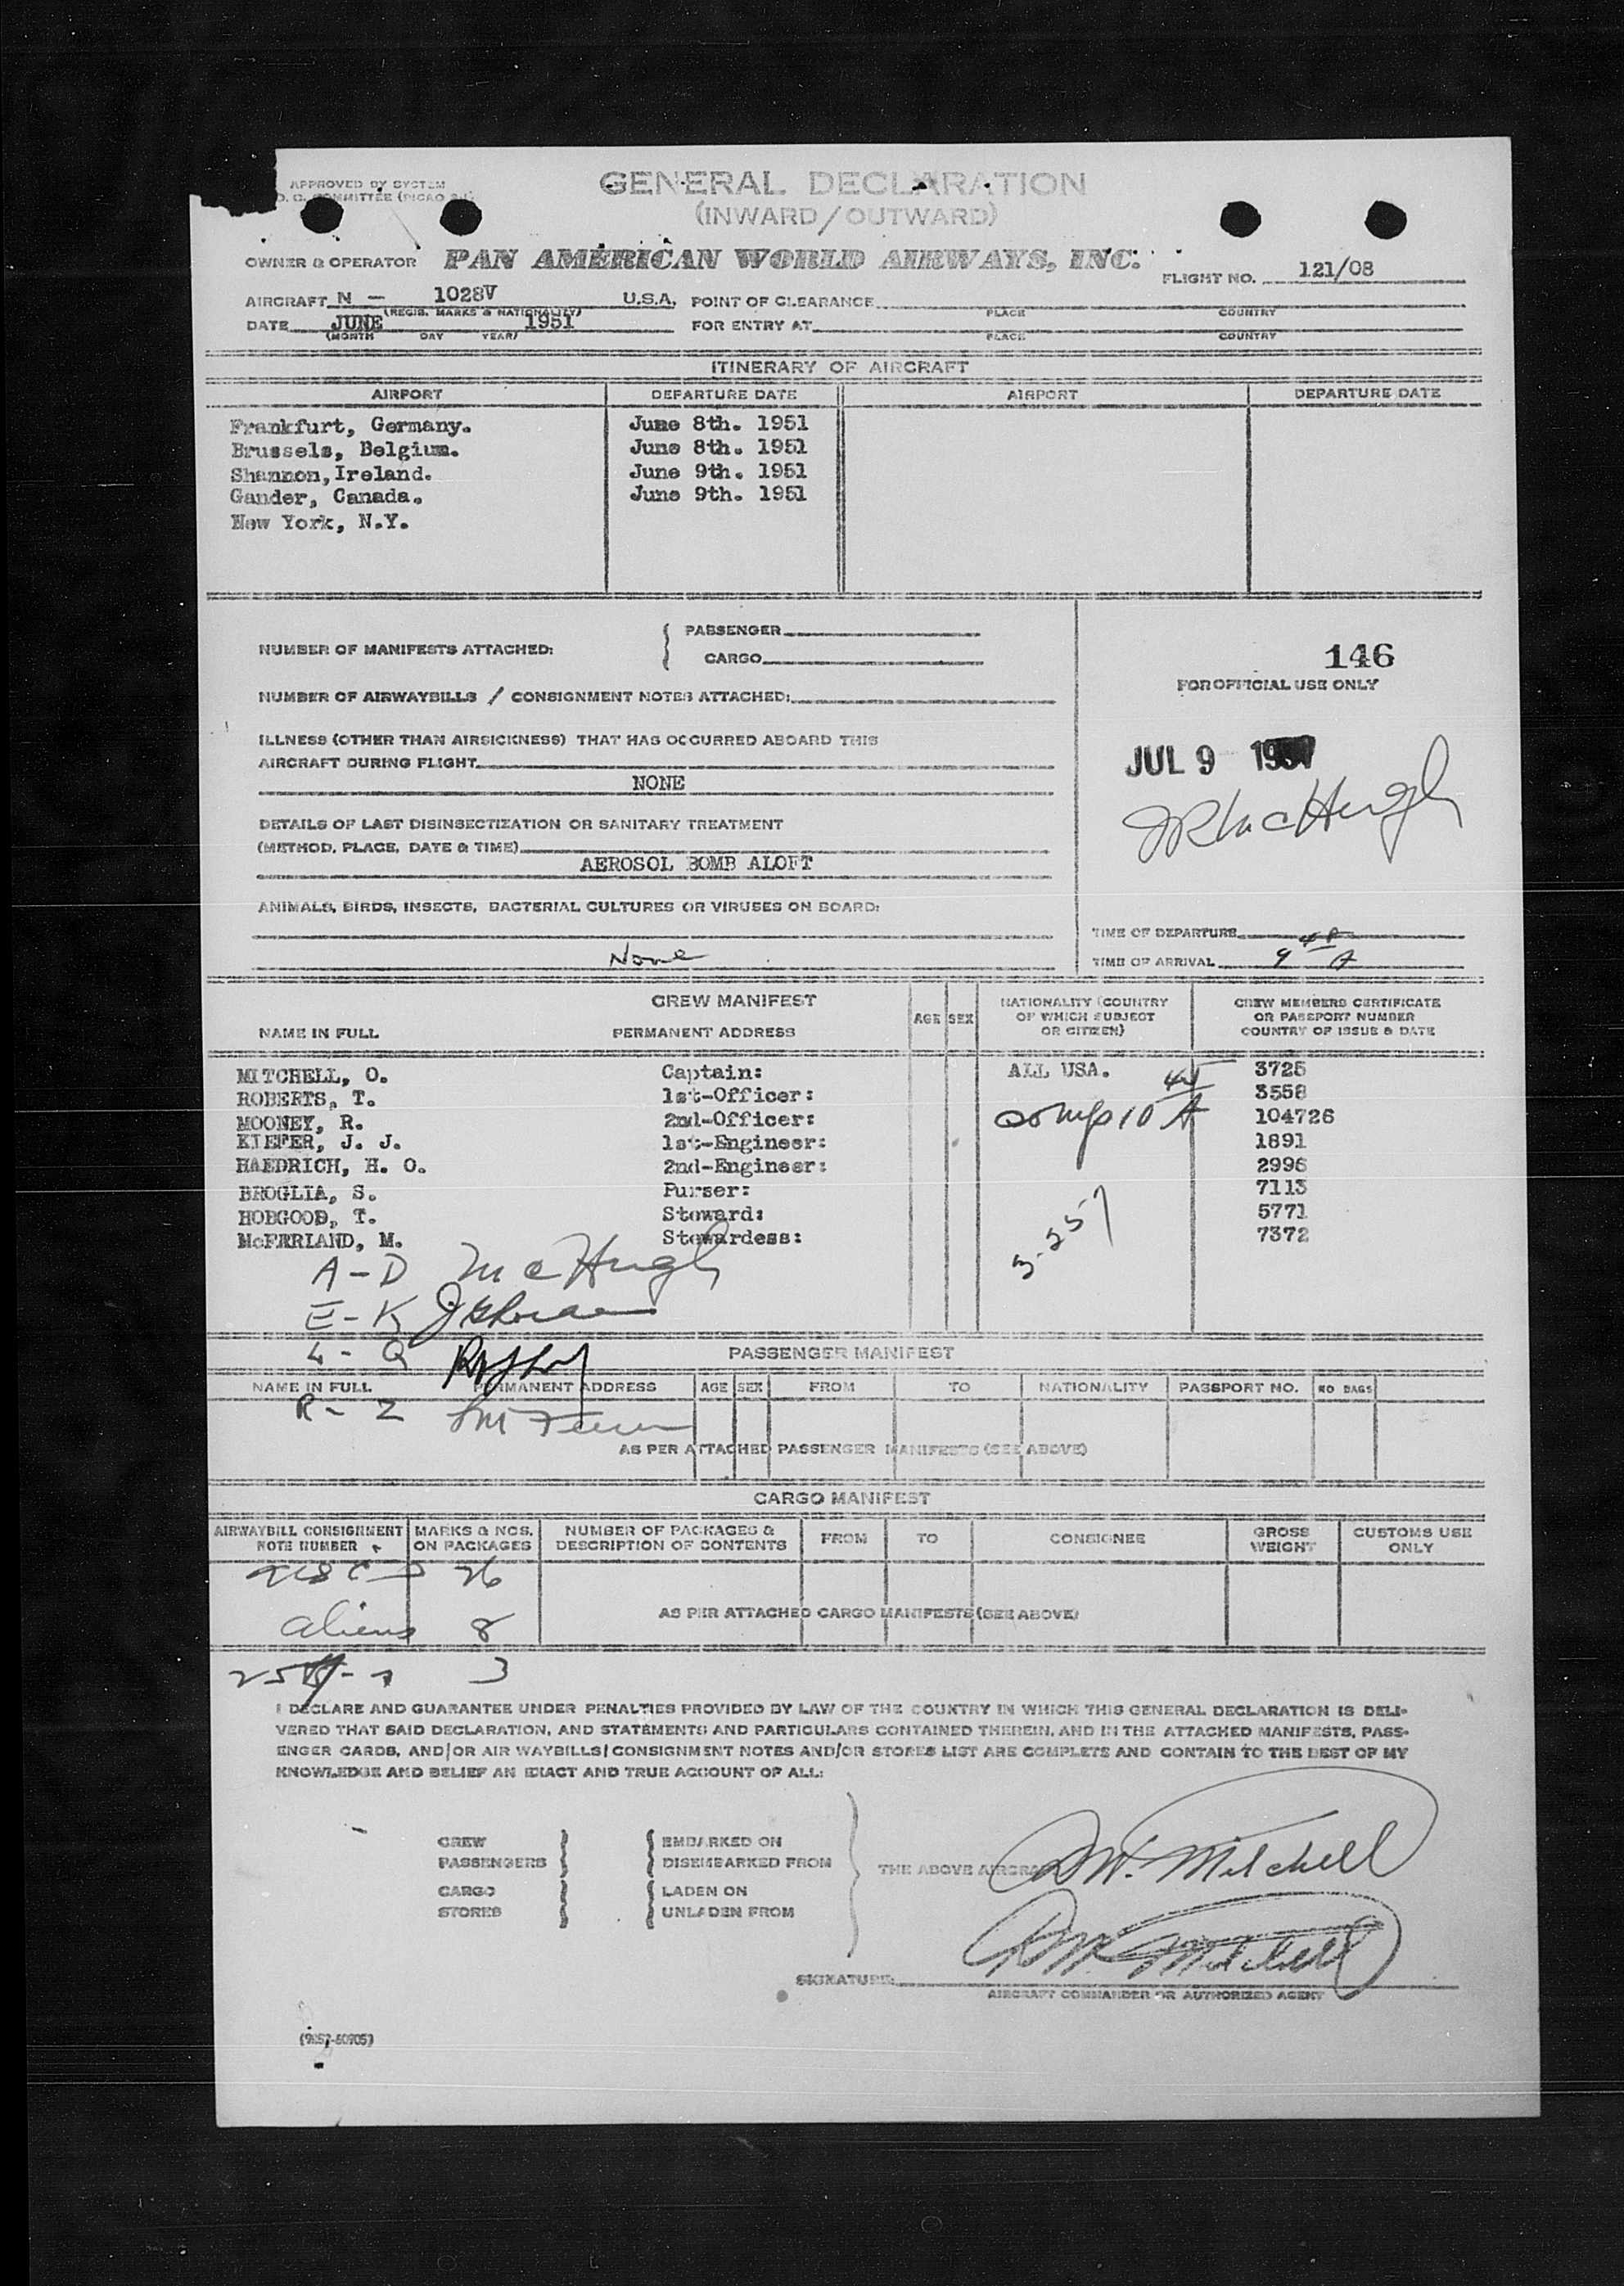 APPROVED BY SYSTEM
COMMITTEE (PICAO
GENERAL DECLARATION
(INWARD/OUTWARD)
OWNER & OPERATOR PAN AMERICAN WORLD AIRWAYS, INC.
FLIGHT NO. 121/08
AIRCRAFT N - 1028V U.S.A. POINT OF CLEARANCE
(REGIS. MARKS & NATIONALITY) PLACE COUNTRY
DATE JUNE 1951 FOR ENTRY AT
(MONTH DAY YEAR) PLACE COUNTRY
ITINERARY OF AIRCRAFT
AIRPORT DEPARTURE DATE AIRPORT DEPARTURE DATE
Frankfurt, Germany. June 8th. 1951
Brussels, Belgium. June 8th. 1951
Shannon, Ireland. June 9th. 1951
Gander, Canada. June 9th. 1951
New York, N.Y.
NUMBER OF MANIFESTS ATTACHED: { PASSENGER
CARGO
146
FOR OFFICIAL USE ONLY
NUMBER OF AIRWAYBILLS / CONSIGNMENT NOTES ATTACHED:
ILLNESS (OTHER THAN AIRSICKNESS) THAT HAS OCCURRED ABOARD THIS
AIRCRAFT DURING FLIGHT
NONE
JUL 9
JR McHugh
DETAILS OF LAST DISINSECTIZATION OR SANITARY TREATMENT
(METHOD, PLACE, DATE & TIME)
AEROSOL BOMB ALOFT
ANIMALS, BIRDS, INSECTS, BACTERIAL CULTURES OR VIRUSES ON BOARD:
None
TIME OF DEPARTURE
TIME OF ARRIVAL 9 48 A
CREW MANIFEST
NAME IN FULL PERMANENT ADDRESS AGE SEX NATIONALITY (COUNTRY OF WHICH SUBJECT OR CITIZEN) CREW MEMBERS CERTIFICATE OR PASSPORT NUMBER COUNTRY OF ISSUE & DATE
MITCHELL, O. Captain: ALL USA. 3725
ROBERTS, T. 1st-Officer: 3558
MOONEY, R. 2nd-Officer: comp 10 45 A 104726
KIEFER, J. J. 1st-Engineer: 1891
HAEDRICH, H. O. 2nd-Engineer: 2996
BROGLIA, S. Purser: 7113
HOBGOOD, T. Steward: 5771
McFERLAND, M. Stewardess: 7372
A-D McHugh
E-K
L-Q
PASSENGER MANIFEST
NAME IN FULL PERMANENT ADDRESS AGE SEX FROM TO NATIONALITY PASSPORT NO. NO BAGS
R-Z
AS PER ATTACHED PASSENGER MANIFESTS (SEE ABOVE)
CARGO MANIFEST
AIRWAYBILL CONSIGNMENT NOTE NUMBER MARKS & NOS. ON PACKAGES NUMBER OF PACKAGES & DESCRIPTION OF CONTENTS FROM TO CONSIGNEE GROSS WEIGHT CUSTOMS USE ONLY
26
aliens 8
AS PER ATTACHED CARGO MANIFESTS (SEE ABOVE)
3
I DECLARE AND GUARANTEE UNDER PENALTIES PROVIDED BY LAW OF THE COUNTRY IN WHICH THIS GENERAL DECLARATION IS DELI-
VERED THAT SAID DECLARATION, AND STATEMENTS AND PARTICULARS CONTAINED THEREIN, AND IN THE ATTACHED MANIFESTS, PASS-
ENGER CARDS, AND/OR AIR WAYBILLS/CONSIGNMENT NOTES AND/OR STORES LIST ARE COMPLETE AND CONTAIN TO THE BEST OF MY
KNOWLEDGE AND BELIEF AN EXACT AND TRUE ACCOUNT OF ALL:
CREW EMBARKED ON
PASSENGERS DISEMBARKED FROM THE ABOVE AIRCRA
CARGO LADEN ON
STORES UNLADEN FROM
Mitchell
Mitchell
SIGNATURE:
AIRCRAFT COMMANDER OR AUTHORIZED AGENT